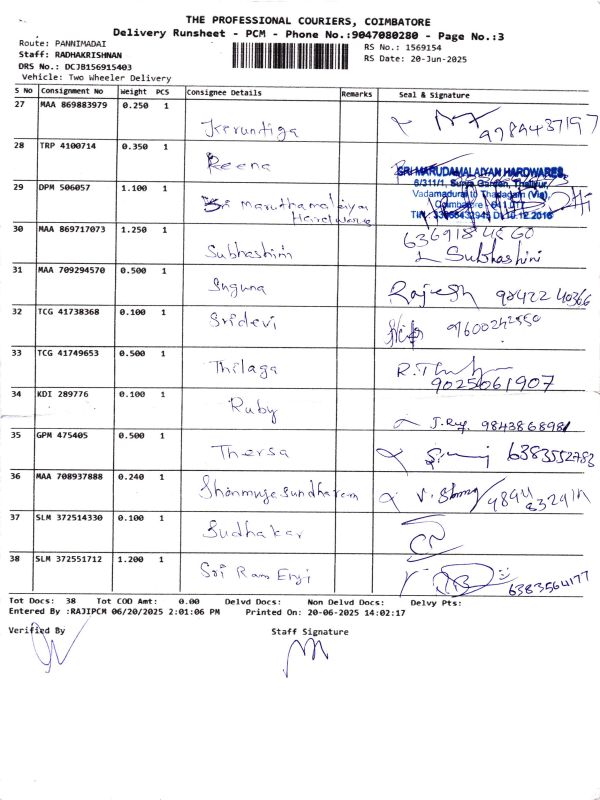 THE PROFESSIONAL COURIERS, COIMBATORE
Delivery Runsheet - PCM - Phone No.:9047080280 - Page No.:3
Route: PANNIMADAI
RS No.: 1569154
Staff: RADHAKRISHNAN
RS Date: 20-Jun-2025
DRS No.: DCJB156915403
Vehicle: Two Wheeler Delivery
S No Consignment No Weight PCS Consignee Details Remarks Seal & Signature
27 MAA 869883979 0.250 1
28 TRP 4100714 0.350 1 Reena
SRI MARUDAMALAIYAN HARDWARES,
6/311/1, Surya Garden, Thaliyur,
Vadamadurai to Thadagam (Via),
29 DPM 506057 1.100 1 Sri Maruthamalaiyan
Hardware
30 MAA 869717073 1.250 1 Subhashini
Subhashini
31 MAA 709294570 0.500 1 Suguna Rajesh 98422 40366
32 TCG 41738368 0.100 1 Sridevi
33 TCG 41749653 0.500 1 Thilaga
9025061907
34 KDI 289776 0.100 1 Ruby 9843868981
35 GPM 475405 0.500 1 Thersa 6383552783
36 MAA 708937888 0.240 1 Shanmuga Sundharam
37 SLM 372514330 0.100 1 Sudhakar
38 SLM 372551712 1.200 1 Sri Ram Engi 6383564177
Tot Docs: 38 Tot COD Amt: 0.00 Delvd Docs: Non Delvd Docs: Delvy Pts:
Entered By :RAJIPCM 06/20/2025 2:01:06 PM Printed On: 20-06-2025 14:02:17
Verified By Staff Signature